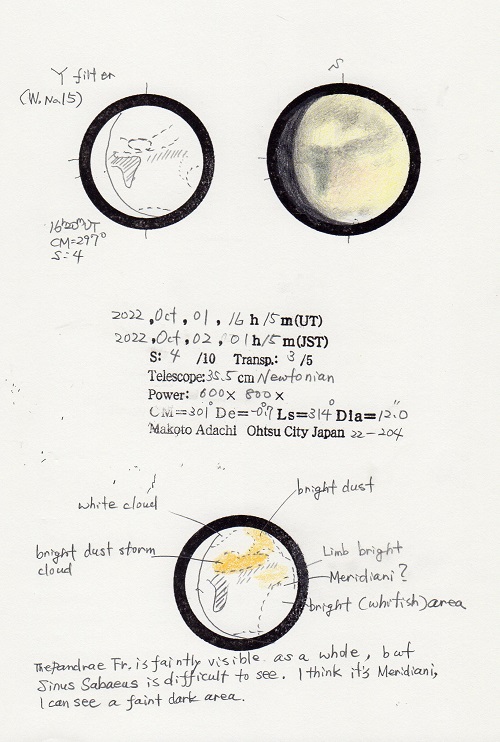 Y filter
(W.No15)
S
16h20mUT
CM=297°
S:4
2022,Oct,01,16h15m(UT)
2022,Oct,02,01h15m(JST)
S: 4 /10 Transp.: 3 /5
Telescope:35.5cm Newtonian
Power: 600× 800×
CM=301° De=-0.°7 Ls=314° Dia=12."0
Makoto Adachi Ohtsu City Japan 22-204
bright dust
white cloud
bright dust storm
cloud
Limb bright
Meridiani?
bright (whitish) area
The Pandrae Fr. is faintly visible as a whole, but
Sinus Sabaeus is difficult to see. I think it's Meridiani,
I can see a faint dark area.